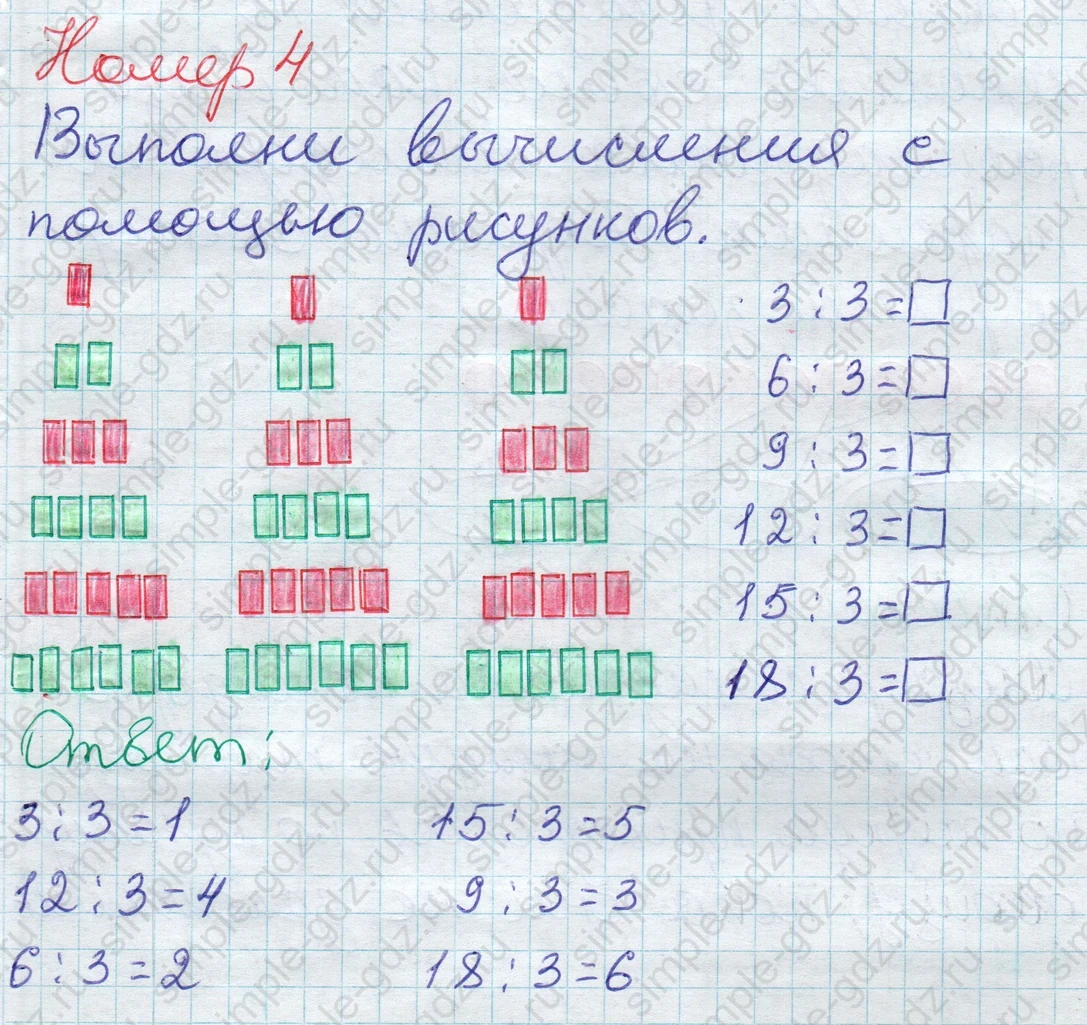 Номер 4
Выполни вычисления с
помощью рисунков.
3 : 3 = □
6 : 3 = □
9 : 3 = □
12 : 3 = □
15 : 3 = □
18 : 3 = □
Ответ:
3 : 3 = 1 15 : 3 = 5
12 : 3 = 4 9 : 3 = 3
6 : 3 = 2 18 : 3 = 6
simple-gdz.ru